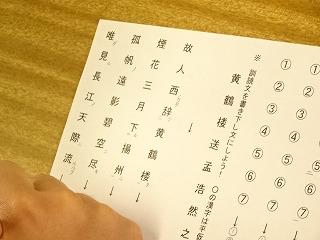 ① ② ③ ④ ⑤ ⑥ ⑦
① ② ③ ④ ⑤ ⑥ ⑦
※ 訓読文を書き下し文にしよう！ ○の漢字は平仮
黄鶴楼送孟浩然之
故人西辞黄鶴楼 ↓
煙花三月下揚州 ↓
孤帆遠影碧空尽 ↓
唯見長江天際流 ↓